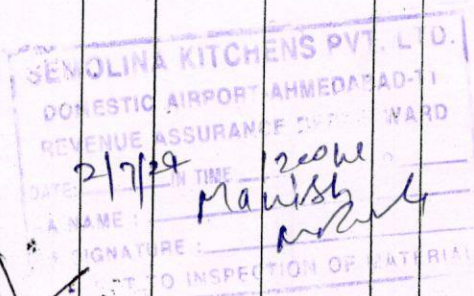 SEMOLINA KITCHENS PVT. LTD.
DOMESTIC AIRPORT-AHMEDABAD-T1
REVENUE ASSURANCE WARD
DATE: 2/7/24 IN TIME
NAME : Manish
SIGNATURE :
TO INSPECTION OF MATERIAL